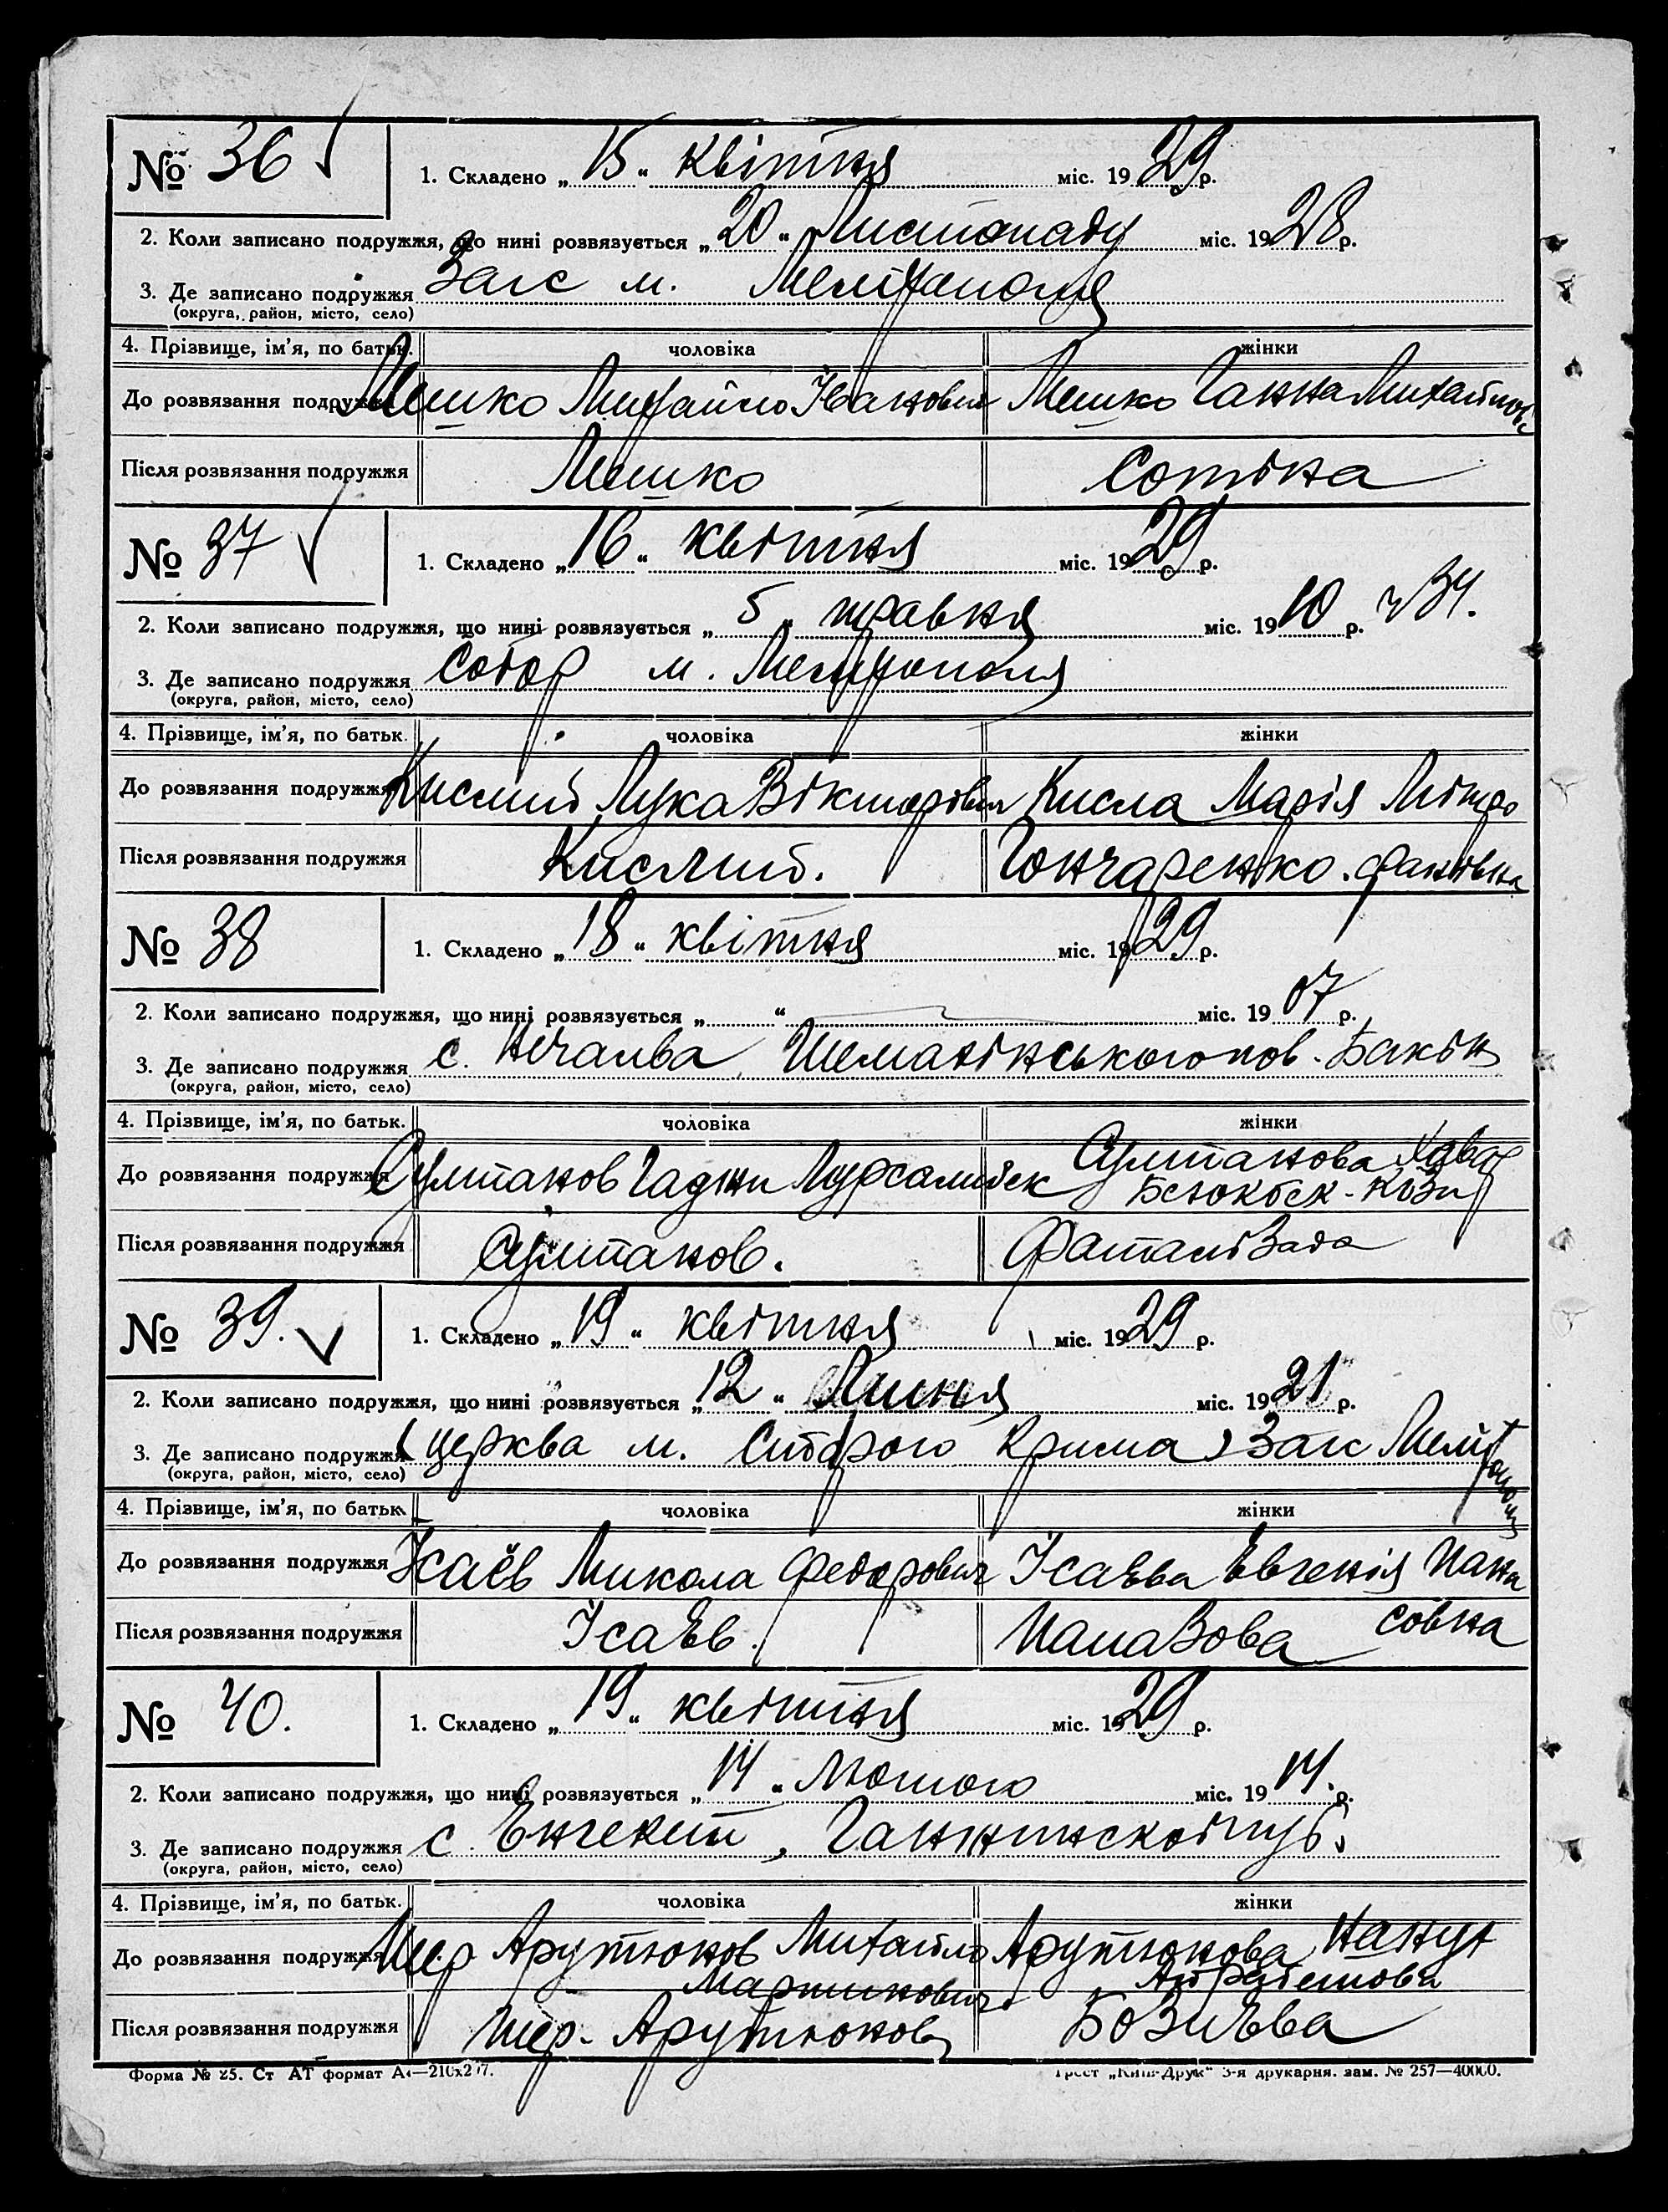 № 36 1. Складено „15“ квітня міс. 1929 р.
2. Коли записано подружжя, що нині розвязується „20“ Листопаду міс. 1928 р.
3. Де записано подружжя Загс м. Мелітополя
(округа, район, місто, село)
4. Прізвище, ім’я, по батьк. чоловіка жінки
До розвязання подружжя Мешко Михайло Іванович Мешко Ганна Михайловн
Після розвязання подружжя Мешко Сотніна
№ 37 1. Складено „16“ квітня міс. 1929 р.
2. Коли записано подружжя, що нині розвязується „5“ травня міс. 1910 р. ч 34.
3. Де записано подружжя Собор м. Мелітополя
(округа, район, місто, село)
4. Прізвище, ім’я, по батьк. чоловіка жінки
До розвязання подружжя Кислий Лука Вікторович Кисла Марія Мітро
Після розвязання подружжя Кислий. Гончаренко. фанівна
№ 38 1. Складено „18“ квітня міс. 1929 р.
2. Коли записано подружжя, що нині розвязується „ “ міс. 1907 р.
3. Де записано подружжя с. пов. Бакін
(округа, район, місто, село)
4. Прізвище, ім’я, по батьк. чоловіка жінки
Султанова
До розвязання подружжя Султанов Гаджи
Після розвязання подружжя Султанов.
№ 39. 1. Складено „19“ квітня міс. 1929 р.
2. Коли записано подружжя, що нині розвязується „12“ Липня міс. 1921 р.
3. Де записано подружжя (церква м. Старого Крима) Загс Мелітополя
(округа, район, місто, село)
4. Прізвище, ім’я, по батьк. чоловіка жінки
До розвязання подружжя Ісаєв Микола Федорович Ісаєва Евгенія Пана
Після розвязання подружжя Ісаєв. совна
№ 40. 1. Складено „19“ квітня міс. 1929 р.
2. Коли записано подружжя, що нині розвязується „14“ Лютого міс. 1914. р.
3. Де записано подружжя с.
(округа, район, місто, село)
4. Прізвище, ім’я, по батьк. чоловіка жінки
До розвязання подружжя Тер Арутюнов Михайло Арутюнова
Мартинович
Після розвязання подружжя Тер-Арутюнов Бозиєва
Форма № 25. Ст АТ формат А4—210х297. Трест „Київ-Друк“ 3-я друкарня. зам. № 257—40000.